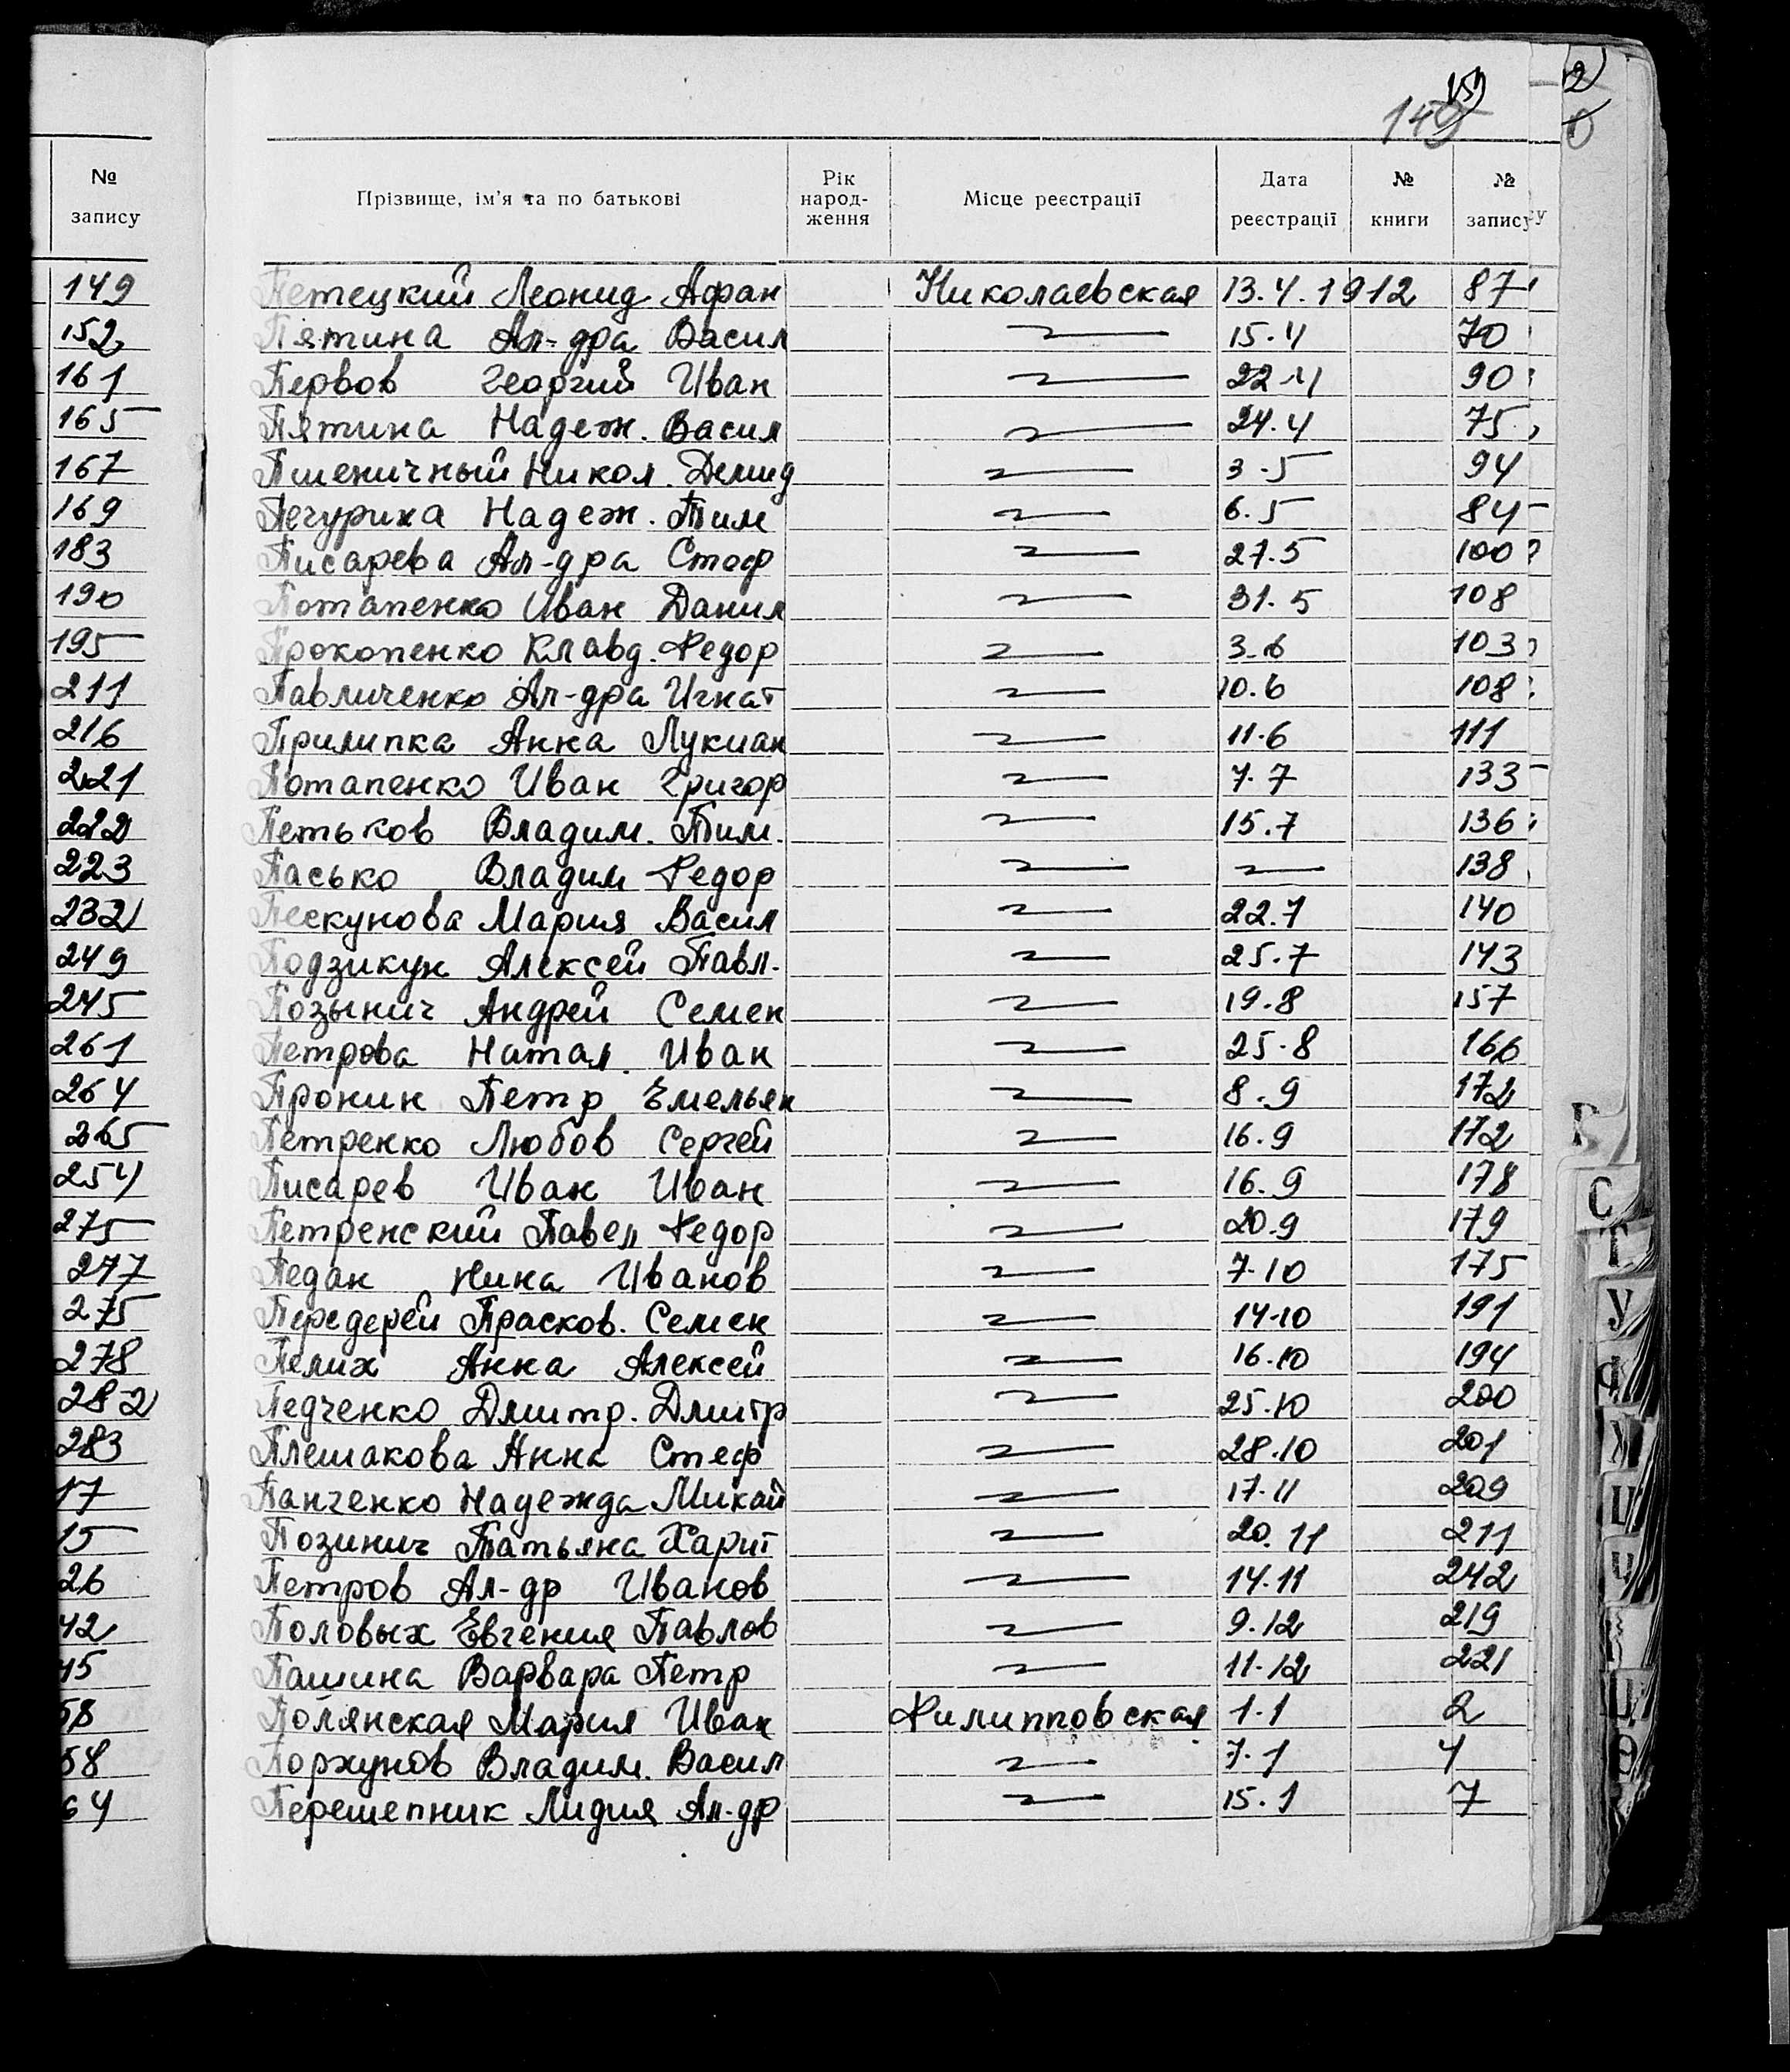 159
149
№ запису
Прізвище, ім'я та по батькові Рік народ-ження Місце реєстрації Дата реєстрації № книги № запису
149 Петецкий Леонид Афан Николаевская 13.4.1912 87
152 Пятина Ал-дра Васил —〃— 15.4 70
161 Первов Георгий Иван —〃— 22.4 90
165 Пятина Надеж. Васил —〃— 24.4 75
167 Пшеничный Никол. Демид —〃— 3.5 94
169 Печуриха Надеж. Тим —〃— 6.5 84
183 Писарева Ал-дра Стеф —〃— 27.5 100
190 Потапенко Иван Данил —〃— 31.5 108
195 Прокопенко Клавд. Федор —〃— 3.6 103
211 Павличенко Ал-дра Игнат —〃— 10.6 108
216 Прилипка Анна Лукиан —〃— 11.6 111
221 Потапенко Иван Григор —〃— 7.7 133
222 Петьков Владим. Тим. —〃— 15.7 136
223 Пасько Владим Федор —〃— —〃— 138
232 Пескунова Мария Васил —〃— 22.7 140
249 Подзикун Алексей Павл. —〃— 25.7 143
245 Позынич Андрей Семен —〃— 19.8 157
261 Петрова Натал. Иван —〃— 25.8 166
264 Пронин Петр Емельян —〃— 8.9 172
265 Петренко Любов Сергей —〃— 16.9 172
254 Писарев Иван Иван —〃— 16.9 178
275 Петренский Павел Федор —〃— 20.9 179
277 Педан Нина Иванов —〃— 7.10 175
275 Передерей Прасков. Семен —〃— 14.10 191
278 Пелих Анна Алексей —〃— 16.10 194
282 Педченко Дмитр. Дмитр —〃— 25.10 200
283 Плешакова Анна Стеф —〃— 28.10 201
17 Панченко Надежда Михай —〃— 17.11 209
15 Позинич Татьяна Харит —〃— 20.11 211
26 Петров Ал-др Иванов —〃— 14.11 242
42 Половых Евгения Павлов —〃— 9.12 219
45 Пашина Варвара Петр —〃— 11.12 221
58 Полянская Мария Иван Филипповская 1.1 2
58 Порхунов Владим. Васил —〃— 7.1 4
64 Перешепник Лидия Ал-др —〃— 15.1 7
С
Т
У
Ф
Х
Ц
Ч